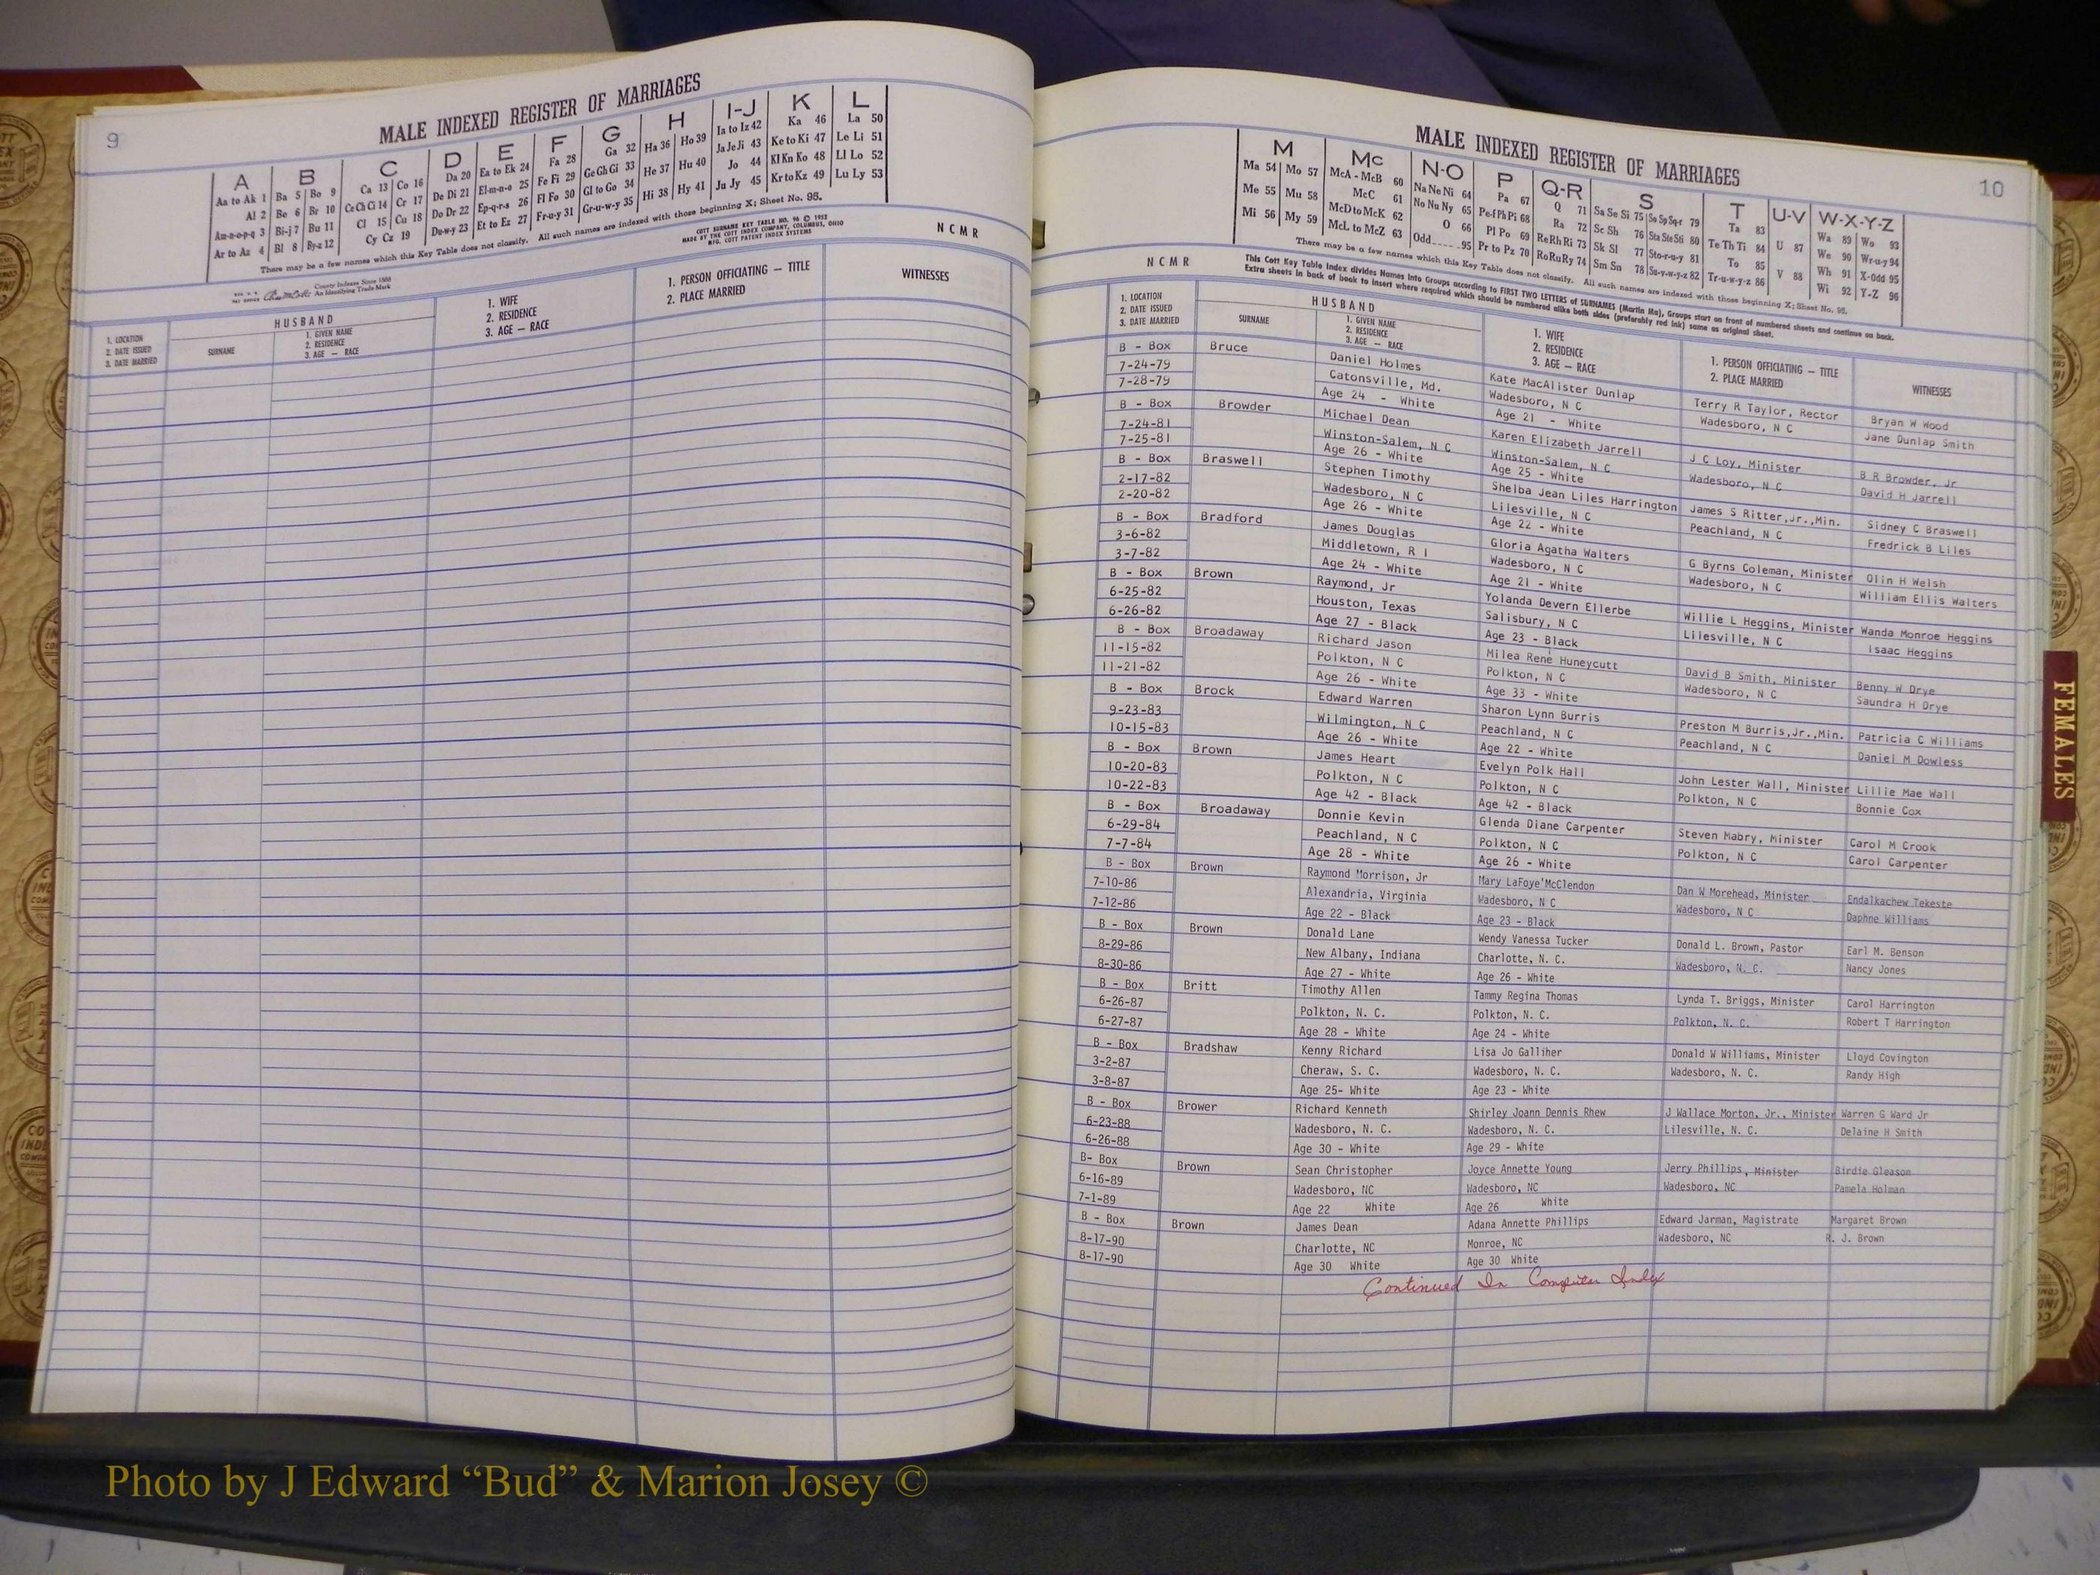 9
MALE INDEXED REGISTER OF MARRIAGES
A B C D E F G H I-J K L
Aa to Ak 1 Ba 5 Bo 9 Ca 13 Co 16 Da 20 Ea to Ek 24 Fa 28 Ga 32 Ha 36 Ho 39 Ia to Iz 42 Ka 46 La 50
Al 2 Be 6 Br 10 Ce Ch Ci 14 Cr 17 De Di 21 El-m-n-o 25 Fe Fi 29 Ge Gh Gi 33 He 37 Hu 40 Ja Je Ji 43 Ke to Ki 47 Le Li 51
Am-n-o-p-q 3 Bi-j 7 Bu 11 Cl 15 Cu 18 Do Dr 22 Ep-q-r-s 26 Fl Fo 30 Gl to Go 34 Hi 38 Hy 41 Jo 44 Kl Kn Ko 48 Ll Lo 52
Ar to Az 4 Bl 8 By-z 12 Cy Cz 19 Du-w-y 23 Et to Ez 27 Fr-u-y 31 Gr-u-w-y 35 Ju Jy 45 Kr to Kz 49 Lu Ly 53
There may be a few names which this Key Table does not classify. All such names are indexed with those beginning X; Sheet No. 95.
County Indexes Since 1888
An Identifying Trade Mark
COTT SURNAME KEY TABLE NO. 96 © 1952
MADE BY THE COTT INDEX COMPANY, COLUMBUS, OHIO
MFG. COTT PATENT INDEX SYSTEMS
N C M R
1. LOCATION
2. DATE ISSUED
3. DATE MARRIED
HUSBAND
SURNAME
1. GIVEN NAME
2. RESIDENCE
3. AGE — RACE
1. WIFE
2. RESIDENCE
3. AGE — RACE
1. PERSON OFFICIATING — TITLE
2. PLACE MARRIED
WITNESSES
MALE INDEXED REGISTER OF MARRIAGES
10
M Mc N-O P Q-R S T U-V W-X-Y-Z
Ma 54 Mo 57 McA - McB 60 Na Ne Ni 64 Pa 67 Q 71 Sa Se Si 75 So Sp Sq-r 79 Ta 83 U 87 Wa 89 Wo 93
Me 55 Mu 58 McC 61 No Nu Ny 65 Pe-f Ph Pi 68 Ra 72 Sc Sh 76 Sta Ste Sti 80 Te Th Ti 84 V 88 We 90 Wr-u-y 94
Mi 56 My 59 McD to McK 62 O 66 Pl Po 69 Re Rh Ri 73 Sk Sl 77 Sto-r-u-y 81 To 85 Wh 91 X-Odd 95
McL to McZ 63 Odd 95 Pr to Pz 70 Ro Ru Ry 74 Sm Sn 78 Su-v-w-y-z 82 Tr-u-w-y-z 86 Wi 92 Y-Z 96
There may be a few names which this Key Table does not classify. All such names are indexed with those beginning X; Sheet No. 95.
N C M R
This Cott Key Table Index divides Names into Groups according to FIRST TWO LETTERS of SURNAMES (Martin Ma), Groups start on front of numbered sheets and continue on back.
Extra sheets in back of book to insert where required which should be numbered alike both sides (preferably red ink) same as original sheet.
1. LOCATION
2. DATE ISSUED
3. DATE MARRIED
HUSBAND
SURNAME
1. GIVEN NAME
2. RESIDENCE
3. AGE — RACE
1. WIFE
2. RESIDENCE
3. AGE — RACE
1. PERSON OFFICIATING — TITLE
2. PLACE MARRIED
WITNESSES
B - Box Bruce Daniel Holmes Kate MacAlister Dunlap Terry R Taylor, Rector Bryan W Wood
7-24-79 Catonsville, Md. Wadesboro, N C Wadesboro, N C Jane Dunlap Smith
7-28-79 Age 24 - White Age 21 - White
B - Box Browder Michael Dean Karen Elizabeth Jarrell J C Loy, Minister B R Browder, Jr
7-24-81 Winston-Salem, N C Winston-Salem, N C Wadesboro, N C David H Jarrell
7-25-81 Age 26 - White Age 25 - White
B - Box Braswell Stephen Timothy Shelba Jean Liles Harrington James S Ritter,Jr.,Min. Sidney C Braswell
2-17-82 Wadesboro, N C Lilesville, N C Peachland, N C Fredrick B Liles
2-20-82 Age 26 - White Age 22 - White
B - Box Bradford James Douglas Gloria Agatha Walters G Byrns Coleman, Minister Olin H Welsh
3-6-82 Middletown, R I Wadesboro, N C Wadesboro, N C William Ellis Walters
3-7-82 Age 24 - White Age 21 - White
B - Box Brown Raymond, Jr Yolanda Devern Ellerbe Willie L Heggins, Minister Wanda Monroe Heggins
6-25-82 Houston, Texas Salisbury, N C Lilesville, N C Isaac Heggins
6-26-82 Age 27 - Black Age 23 - Black
B - Box Broadaway Richard Jason Milea René Huneycutt David B Smith, Minister Benny W Drye
11-15-82 Polkton, N C Polkton, N C Wadesboro, N C Saundra H Drye
11-21-82 Age 26 - White Age 33 - White
B - Box Brock Edward Warren Sharon Lynn Burris Preston M Burris,Jr.,Min. Patricia C Williams
9-23-83 Wilmington, N C Peachland, N C Peachland, N C Daniel M Dowless
10-15-83 Age 26 - White Age 22 - White
B - Box Brown James Heart Evelyn Polk Hall John Lester Wall, Minister Lillie Mae Wall
10-20-83 Polkton, N C Polkton, N C Polkton, N C Bonnie Cox
10-22-83 Age 42 - Black Age 42 - Black
B - Box Broadaway Donnie Kevin Glenda Diane Carpenter Steven Mabry, Minister Carol M Crook
6-29-84 Peachland, N C Polkton, N C Polkton, N C Carol Carpenter
7-7-84 Age 28 - White Age 26 - White
B - Box Brown Raymond Morrison, Jr Mary LaFoye'McClendon Dan W Morehead, Minister Endalkachew Tekeste
7-10-86 Alexandria, Virginia Wadesboro, N C Wadesboro, N C Daphne Williams
7-12-86 Age 22 - Black Age 23 - Black
B - Box Brown Donald Lane Wendy Vanessa Tucker Donald L. Brown, Pastor Earl M. Benson
8-29-86 New Albany, Indiana Charlotte, N. C. Wadesboro, N. C. Nancy Jones
8-30-86 Age 27 - White Age 26 - White
B - Box Britt Timothy Allen Tammy Regina Thomas Lynda T. Briggs, Minister Carol Harrington
6-26-87 Polkton, N. C. Polkton, N. C. Polkton, N. C. Robert T Harrington
6-27-87 Age 28 - White Age 24 - White
B - Box Bradshaw Kenny Richard Lisa Jo Galliher Donald W Williams, Minister Lloyd Covington
3-2-87 Cheraw, S. C. Wadesboro, N. C. Wadesboro, N. C. Randy High
3-8-87 Age 25- White Age 23 - White
B - Box Brower Richard Kenneth Shirley Joann Dennis Rhew J Wallace Morton, Jr., Minister Warren G Ward Jr
6-23-88 Wadesboro, N. C. Wadesboro, N. C. Lilesville, N. C. Delaine H Smith
6-26-88 Age 30 - White Age 29 - White
B- Box Brown Sean Christopher Joyce Annette Young Jerry Phillips, Minister Birdie Gleason
6-16-89 Wadesboro, NC Wadesboro, NC Wadesboro, NC Pamela Holman
7-1-89 Age 22 White Age 26 White
B - Box Brown James Dean Adana Annette Phillips Edward Jarman, Magistrate Margaret Brown
8-17-90 Charlotte, NC Monroe, NC Wadesboro, NC R. J. Brown
8-17-90 Age 30 White Age 30 White
Continued In Computer Index
FEMALES
Photo by J Edward “Bud” & Marion Josey ©